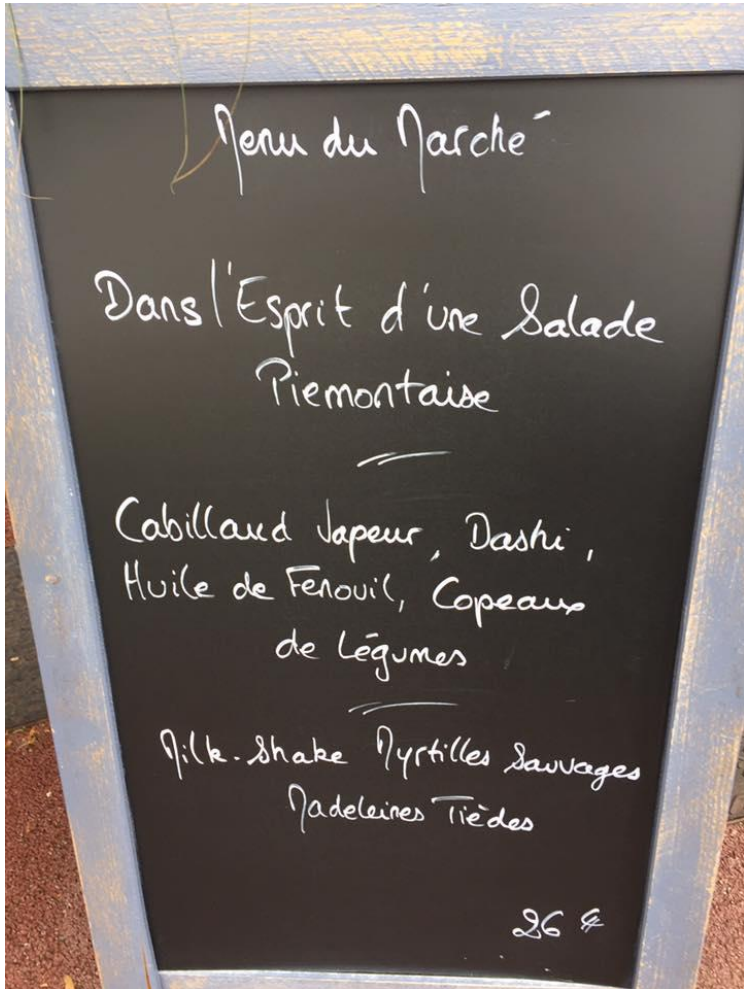 Menu du Marché
Dans l'Esprit d'une Salade
Piemontaise
Cabillaud Vapeur, Dashi,
Huile de Fenouil, Copeaux
de Légumes
Milk-Shake Myrtilles Sauvages
Madeleines Tièdes
26 €